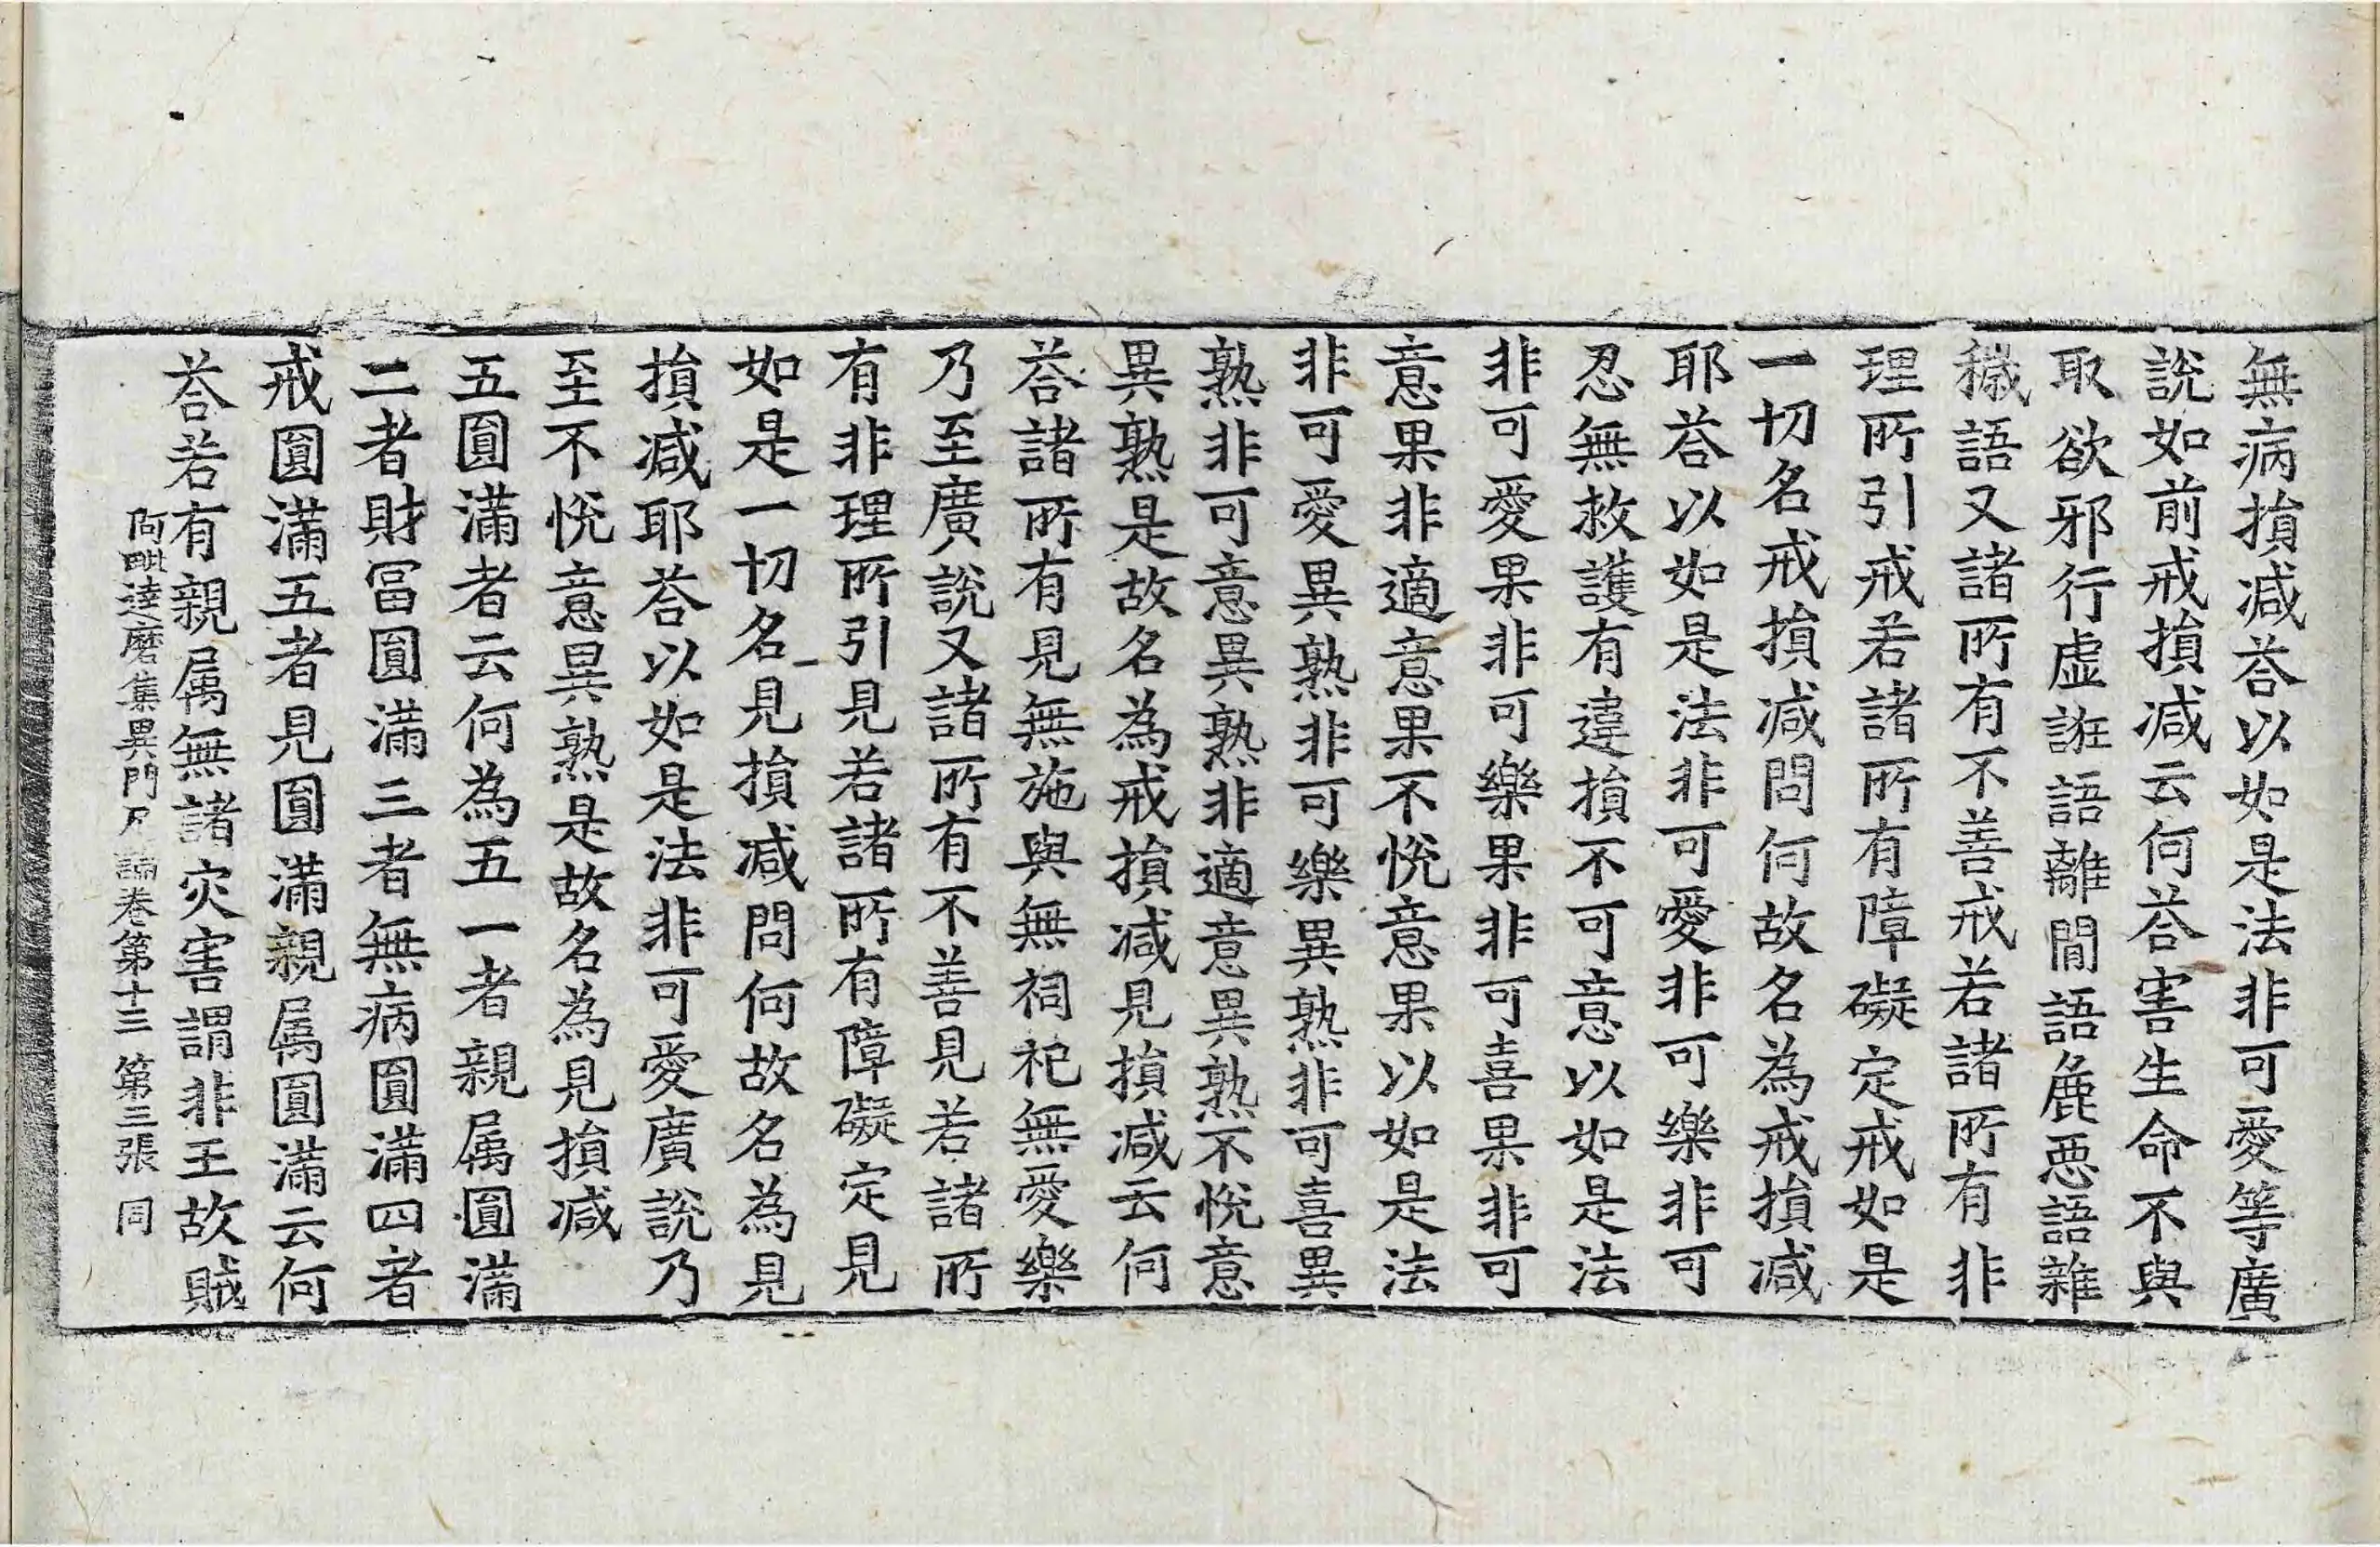 無病損減荅以如是法非可愛等廣
說如前戒損減云何荅害生命不與
取欲邪行虛誑語離間語麁惡語雜
穢語又諸所有不善戒若諸所有非
理所引戒若諸所有障礙定戒如是
一切名戒損減問何故名為戒損減
耶荅以如是法非可愛非可樂非可
忍無救護有違損不可意以如是法
非可愛果非可樂果非可喜果非可
意果非適意果不悅意果以如是法
非可愛異熟非可樂異熟非可喜異
熟非可意異熟非適意異熟不悅意
異熟是故名為戒損減見損減云何
荅諸所有見無施與無祠祀無愛樂
乃至廣說又諸所有不善見若諸所
有非理所引見若諸所有障礙定見
如是一切名見損減問何故名為見
損減耶荅以如是法非可愛廣說乃
至不悅意異熟是故名為見損減
五圓滿者云何為五一者親属圓滿
二者財冨圓滿三者無病圓滿四者
戒圓滿五者見圓滿親属圓滿云何
荅若有親属無諸灾害謂非王故賊
阿毗達磨集異門足論卷第十三 第三張 同